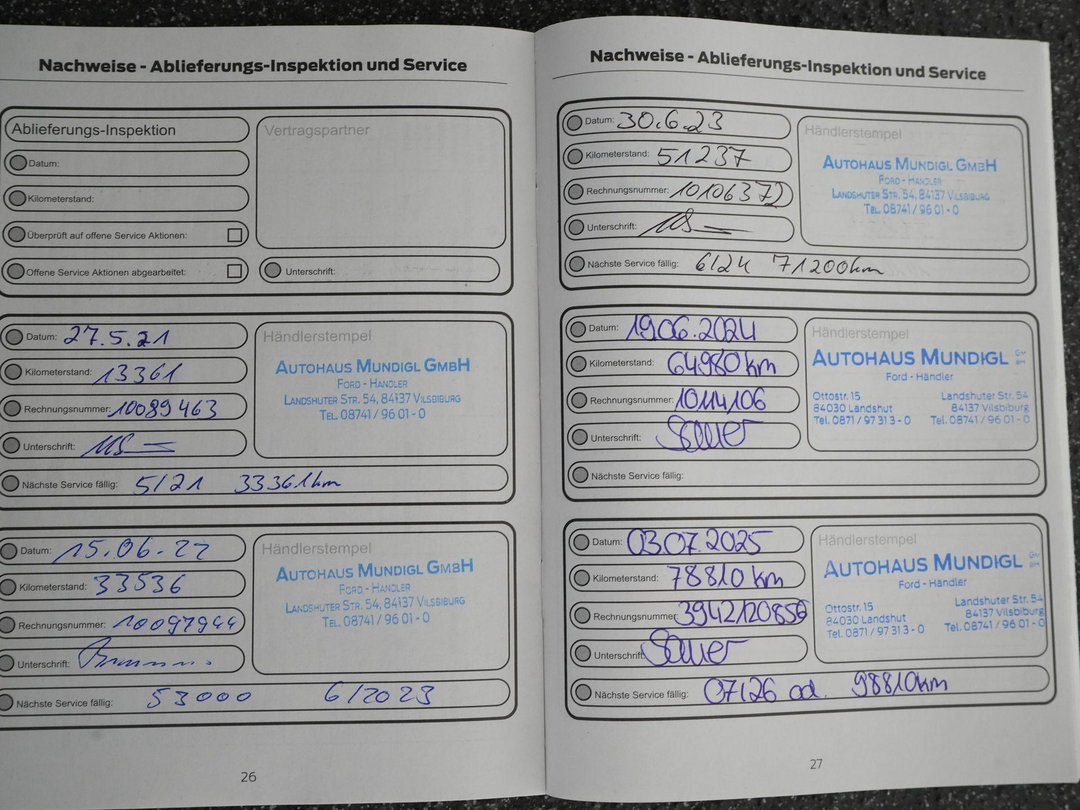 Nachweise - Ablieferungs-Inspektion und Service
Ablieferungs-Inspektion
Vertragspartner
Datum:
Kilometerstand:
Überprüft auf offene Service Aktionen:
Offene Service Aktionen abgearbeitet:
Unterschrift:
Datum: 27.5.21
Händlerstempel
Kilometerstand: 13361
Rechnungsnummer: 10089463
Unterschrift:
AUTOHAUS MUNDIGL GMBH
FORD - HÄNDLER
LANDSHUTER STR. 54, 84137 VILSBIBURG
TEL. 08741 / 96 01 - 0
Nächste Service fällig: 5/21 33361km
Datum: 15.06.22
Händlerstempel
Kilometerstand: 33536
Rechnungsnummer: 10097944
Unterschrift:
AUTOHAUS MUNDIGL GMBH
FORD - HÄNDLER
LANDSHUTER STR. 54, 84137 VILSBIBURG
TEL. 08741 / 96 01 - 0
Nächste Service fällig: 53000 6/2023
26
Nachweise - Ablieferungs-Inspektion und Service
Datum: 30.6.23
Händlerstempel
Kilometerstand: 51237
Rechnungsnummer: 10106372
Unterschrift:
AUTOHAUS MUNDIGL GMBH
FORD - HÄNDLER
LANDSHUTER STR. 54, 84137 VILSBIBURG
TEL. 08741 / 96 01 - 0
Nächste Service fällig: 6/24 71200km
Datum: 19.06.2024
Händlerstempel
Kilometerstand: 64980 km
Rechnungsnummer: 10114106
Unterschrift: Sauer
AUTOHAUS MUNDIGL
Ford - Händler
Ottostr. 15 Landshuter Str. 54
84030 Landshut 84137 Vilsbiburg
Tel. 0871 / 97 31 3 - 0 Tel. 08741 / 96 01 - 0
Nächste Service fällig:
Datum: 03.07.2025
Händlerstempel
Kilometerstand: 78810 km
Rechnungsnummer: 3942120856
Unterschrift: Sauer
AUTOHAUS MUNDIGL
Ford - Händler
Ottostr. 15 Landshuter Str. 54
84030 Landshut 84137 Vilsbiburg
Tel. 0871 / 97 31 3 - 0 Tel. 08741 / 96 01 - 0
Nächste Service fällig: 07/26 od. 98810km
27